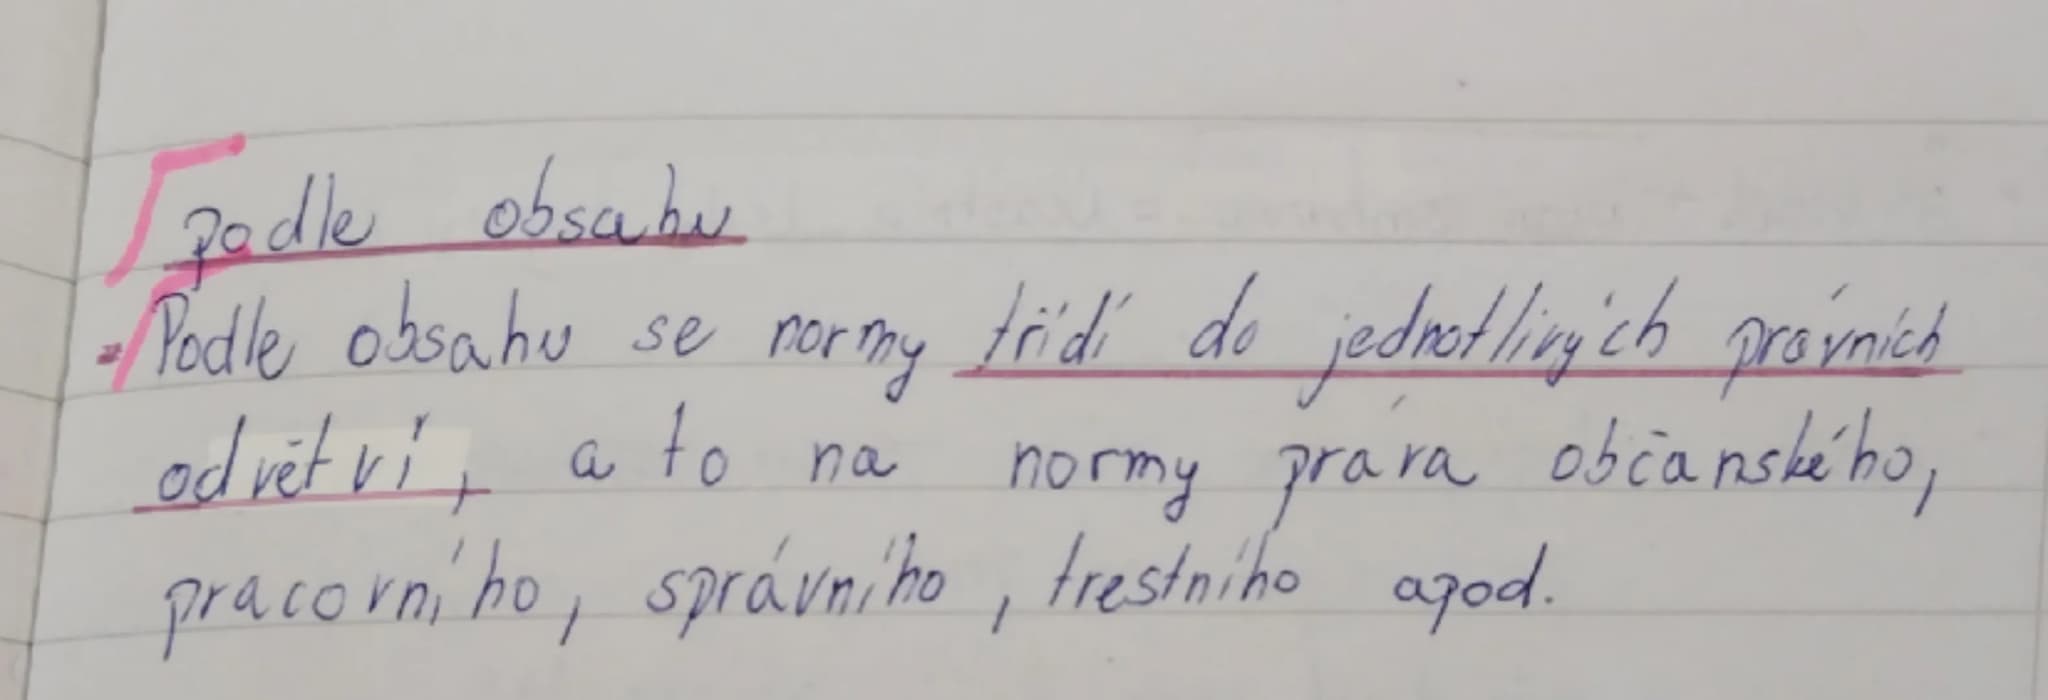 podle obsahu
Podle obsahu se normy třídí do jednotlivých právních
odvětví, a to na normy práva občanského,
pracovního, správního, trestního apod.